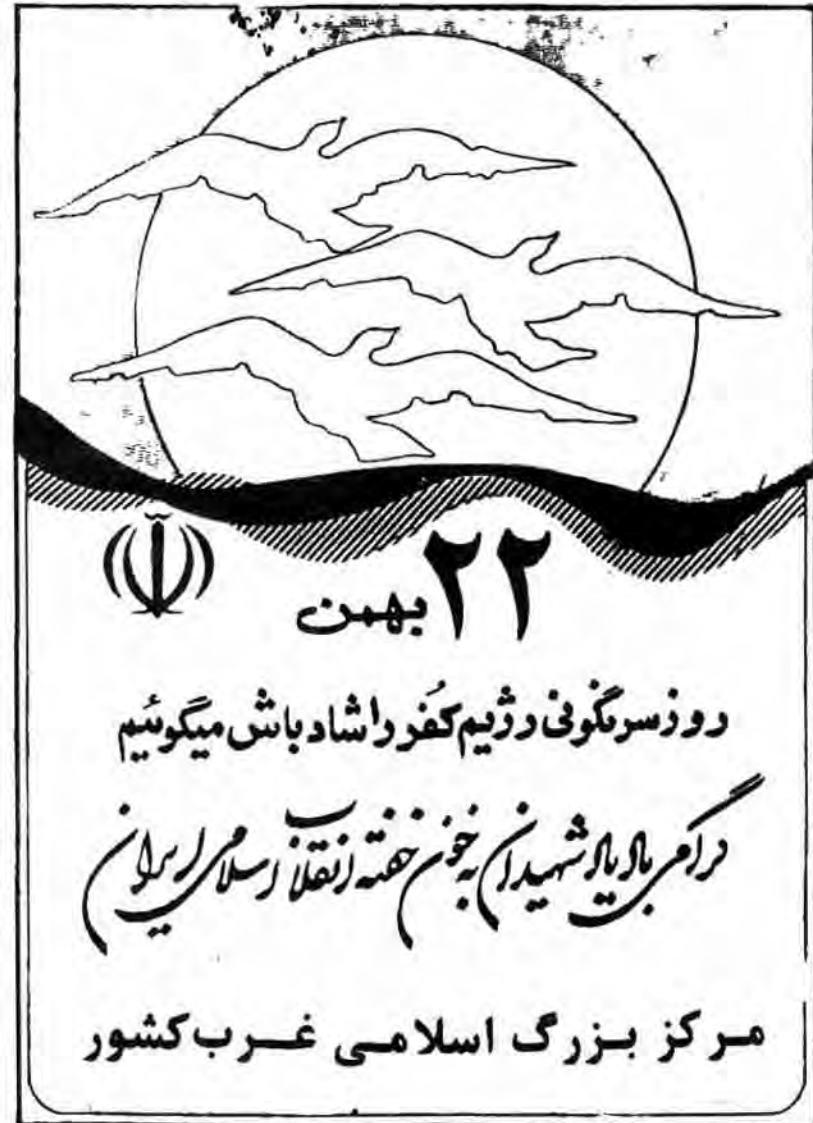 ۲۲ بهمن
روز سرنگونی رژیم کفر را شادباش میگوئیم
گرامی باد یاد شهیدان به خون خفته انقلاب اسلامی ایران
مرکز بزرگ اسلامی غرب کشور